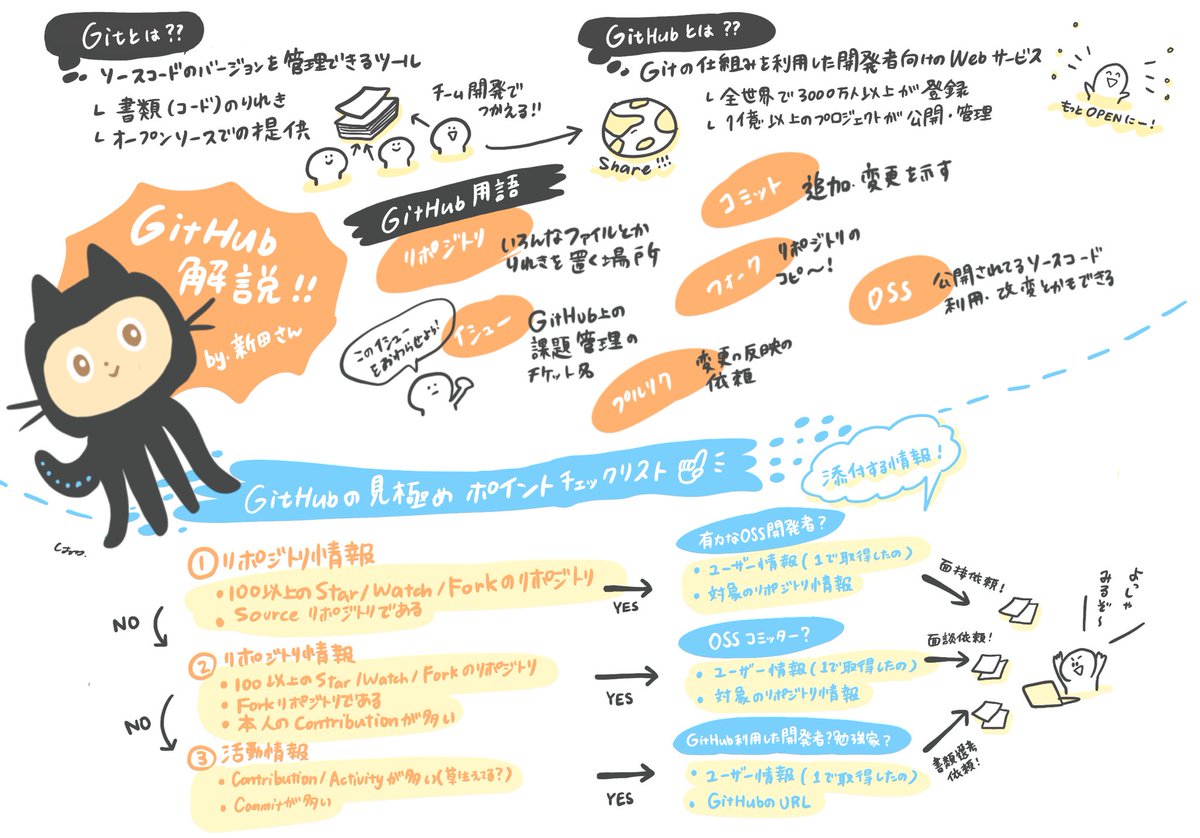 Gitとは??
ソースコードのバージョンを管理できるツール
書類(コード)のりれき
オープンソースでの提供
チーム開発で
つかえる!!
GitHubとは??
Gitの仕組みを利用した開発者向けのWebサービス
全世界で3000万人以上が登録
1億以上のプロジェクトが公開・管理
Share!!!
もっとOPENにー!
GitHub
解説!!
by.新田さん
GitHub用語
リポジトリ
いろんなファイルとか
りれきを置く場所
イシュー
GitHub上の
課題管理の
チケット名
このイシュー
をおわらせよう!
コミット
追加・変更を示す
フォーク
リポジトリの
コピ〜!
プルリク
変更の反映の
依頼
OSS
公開されてるソースコード
利用・改変とかもできる
GitHubの見極めポイントチェックリスト
添付する情報!
①リポジトリ情報
・100以上のStar/Watch/Forkのリポジトリ
・Sourceリポジトリである
YES
有力なOSS開発者?
・ユーザー情報(1で取得したの)
・対象のリポジトリ情報
面接依頼!
NO
②リポジトリ情報
・100以上のStar/Watch/Forkのリポジトリ
・Forkリポジトリである
・本人のContributionが多い
YES
OSSコミッター?
・ユーザー情報(1で取得したの)
・対象のリポジトリ情報
面談依頼!
NO
③活動情報
・Contribution/Activityが多い(草生えてる?)
・Commitが多い
YES
GitHub利用した開発者?勉強家?
・ユーザー情報(1で取得したの)
・GitHubのURL
書類選考
依頼!
よっしゃ
みるぞ〜